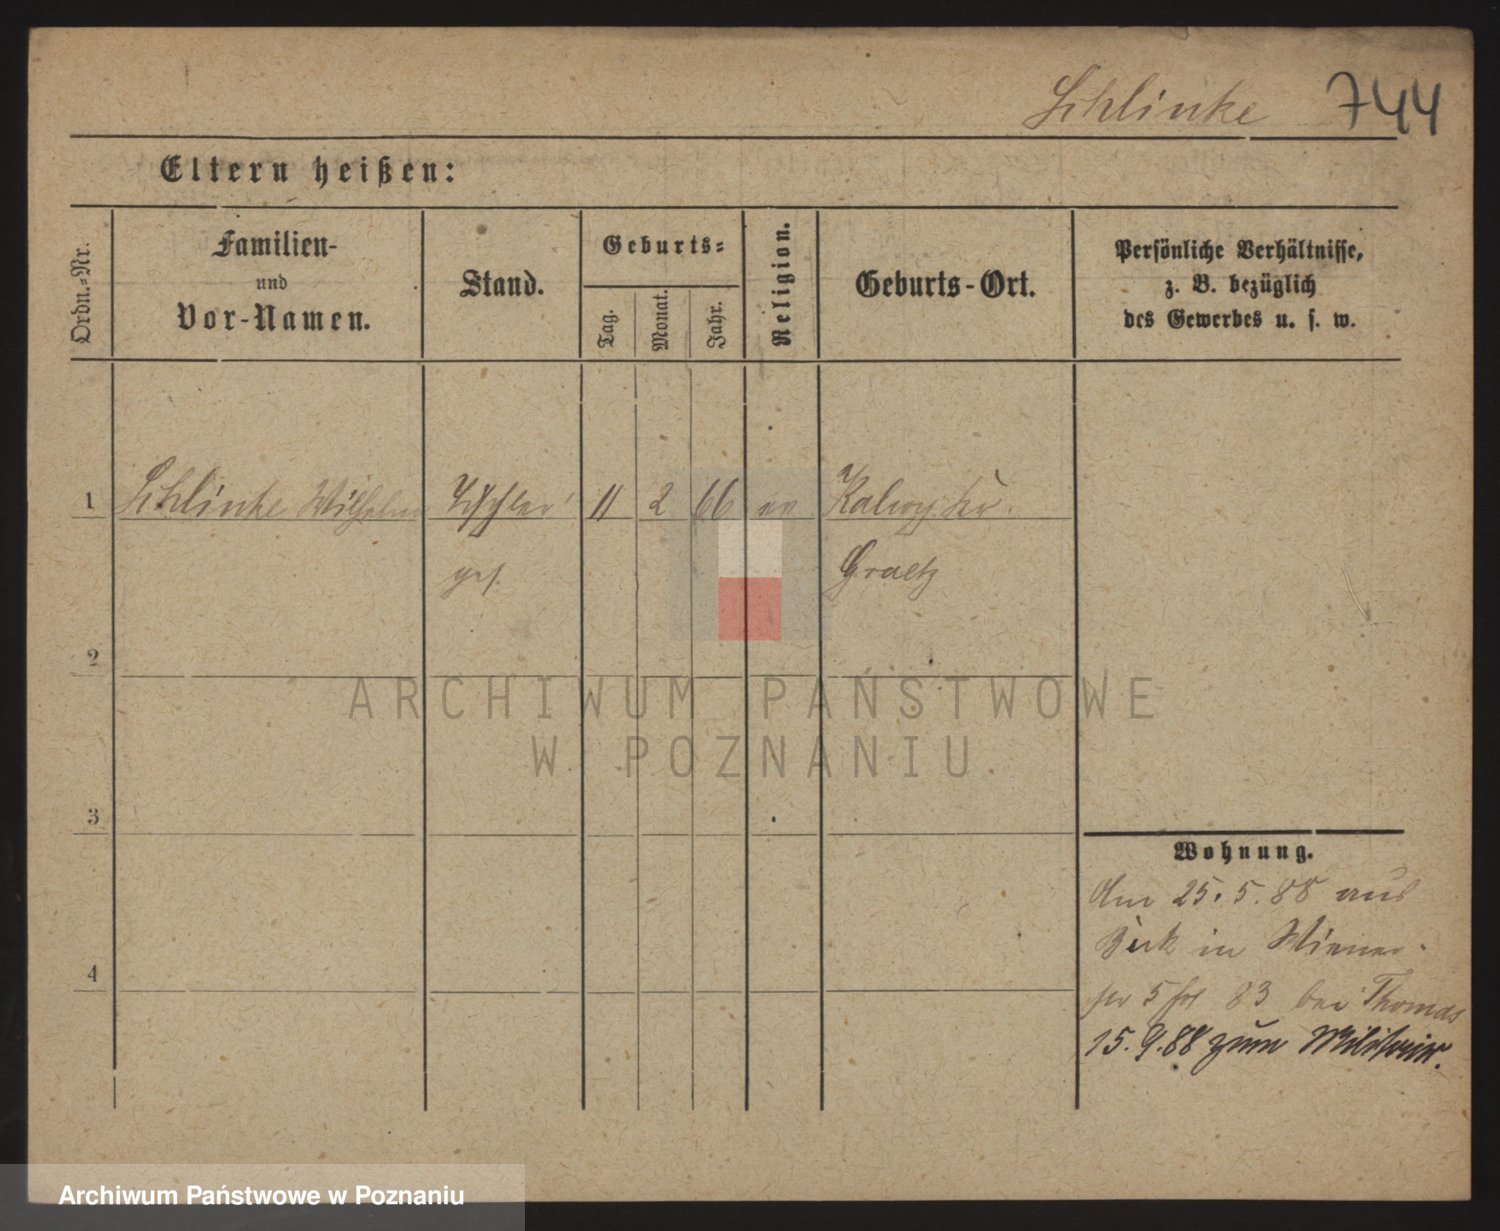 Schlinke 744
Eltern heißen:
Ordn.-Nr.
Familien-
und
Vor-Namen.
Stand.
Geburts-
Tag.
Monat.
Jahr.
Religion.
Geburts-Ort.
Persönliche Verhältnisse,
z. B. bezüglich
des Gewerbes u. s. w.
1 Schlinke Wilhelm Tischler 11 2 66 ev Kr.
ges. Graetz
2
3
4
Wohnung.
Am 25.5.88 aus
in Wiener
83 bei Thomas
15.9.88 zum Militair.
ARCHIWUM PAŃSTWOWE
W POZNANIU
Archiwum Państwowe w Poznaniu